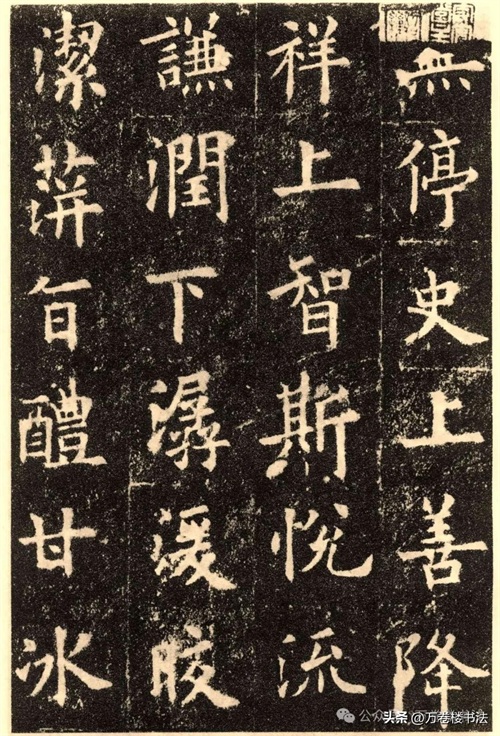 無停史上善降
祥上智斯悅流
謙潤下潺湲晈
潔蓱旨醴甘冰
头条 @万卷楼书法